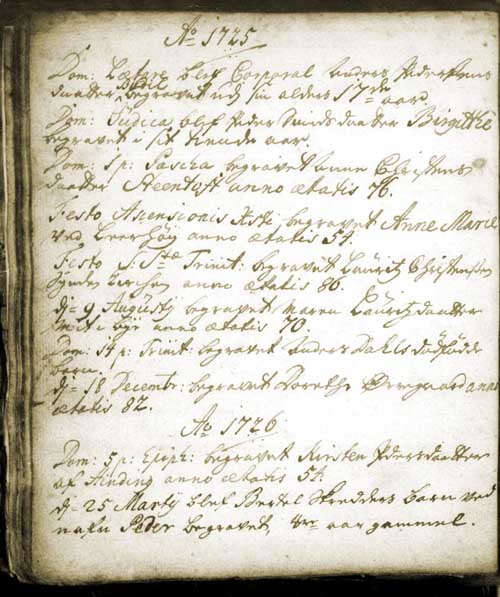 Ao 1725
Dom: Lætare blef Corporal Anders Pedersens
daatter Bodil begravet udj sin alders 17de aar
Dom: Judica blef Peder Smidsdaatter Birgithe
begravet i sit tiende aar.
Dom: 5 p: Pascha begravet Anne Christens
daatter Steentoft anno ætatis 76.
Festo Ascensionis Xsti begravet Anne Marie
ved Leerhøj anno ætatis 54.
Festo S: Stæ Trinit: begravet Lauritz Christensen
anno ætatis 86.
dj 9 Augustj begravet Maren Lauritzdaatter
anno ætatis 70.
Dom: 14 p: Trinit: begravet Anders Dahls dødfødde
barn.
dj 18 Decembr: begravet Dorethe Ovregaard anno
ætatis 82.
Ao 1726
Dom: 5 p: Epiph: begravet Kirsten Pedersdaatter
af Hinding anno ætatis 54.
dj 25 Martij blef Bertel Skredders barn ved
nafn Peder begravet, aar gammel.